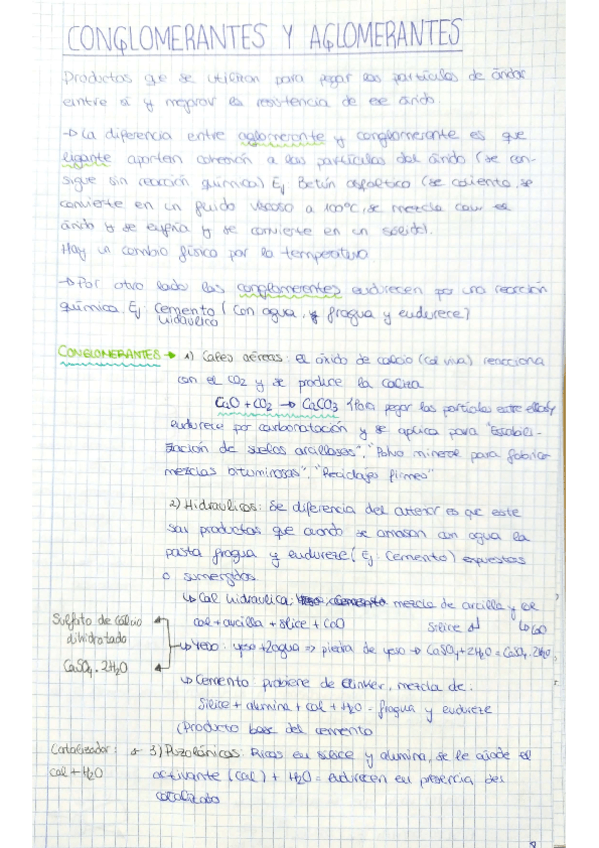 CONGLOMERANTES Y AGLOMERANTES
Productos qe se utilizan para pegar las partículas de áridos
entre sí y mejorar la resistencia de ese árido.
→ La diferencia entre aglomerante y conglomerante es que
ligante aportan cohesión a las partículas del árido (se con-
sigue sin reacción química) Ej Betún asfáltico (se calienta, se
convierte en un fluido viscoso a 100ºC, se mezcla con el
árido y se enfría y se convierte en un sólido).
Hay un cambio físico por la temperatura
→ Por otro lado los conglomerantes endurecen por una reacción
química. Ej: Cemento (Con agua, fragua y endurece)
hidráulico
CONGLOMERANTES → 1) Cales aéreas: el óxido de calcio (Cal viva) reacciona
con el CO2 y se produce la caliza
CaO + CO2 → CaCO3 Para pegar las partículas este
endurece por carbonatación y se aplica para "Estabili-
zación de suelos arcillosos", "Polvo mineral para fabricar
mezclas bituminosas", "Reciclaje firmes"
2) Hidráulicos: Se diferencia del anterior es que este
son productos que cuando se amasan con agua la
pasta fragua y endureze (Ej: Cemento) expuestos
o sumergidos
↳ Cal hidráulica: mezcla de arcilla y el
cal + arcilla + sílice + CaO sílice ↳ CaO
Sulfato de calcio
dihidratado
CaSO4 · 2H2O
↳ Yeso: yeso + 2agua => piedra de yeso → CaSO4 + 2H2O = CaSO4 · 2H2O
↳ Cemento: proviene de Clinker, mezcla de:
Sílice + alumina + cal + H2O = fragua y endureze
(Producto base del cemento
Catalizador: → 3) Puzolánicos: Ricos en sílice y alumina, se le añade el
cal + H2O activante (cal) + H2O = endurecen en presencia del
catalizador
8